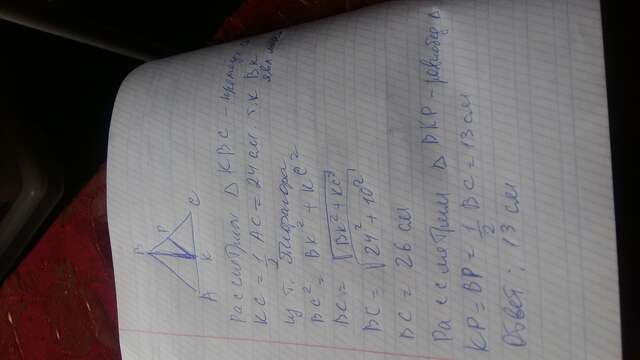 B
P
A
K
C
Рассмотрим Δ KBC -
KC = 1/2 AC = 24 см. т.к BK
из т. Пифагора
BC² = BK² + KC²
BC = √BK² + KC²
BC = √24² + 10²
BC = 26 см
Рассмотрим Δ BKP - равнобед Δ
KP = BP = 1/2 BC = 13 см
Ответ: 13 см